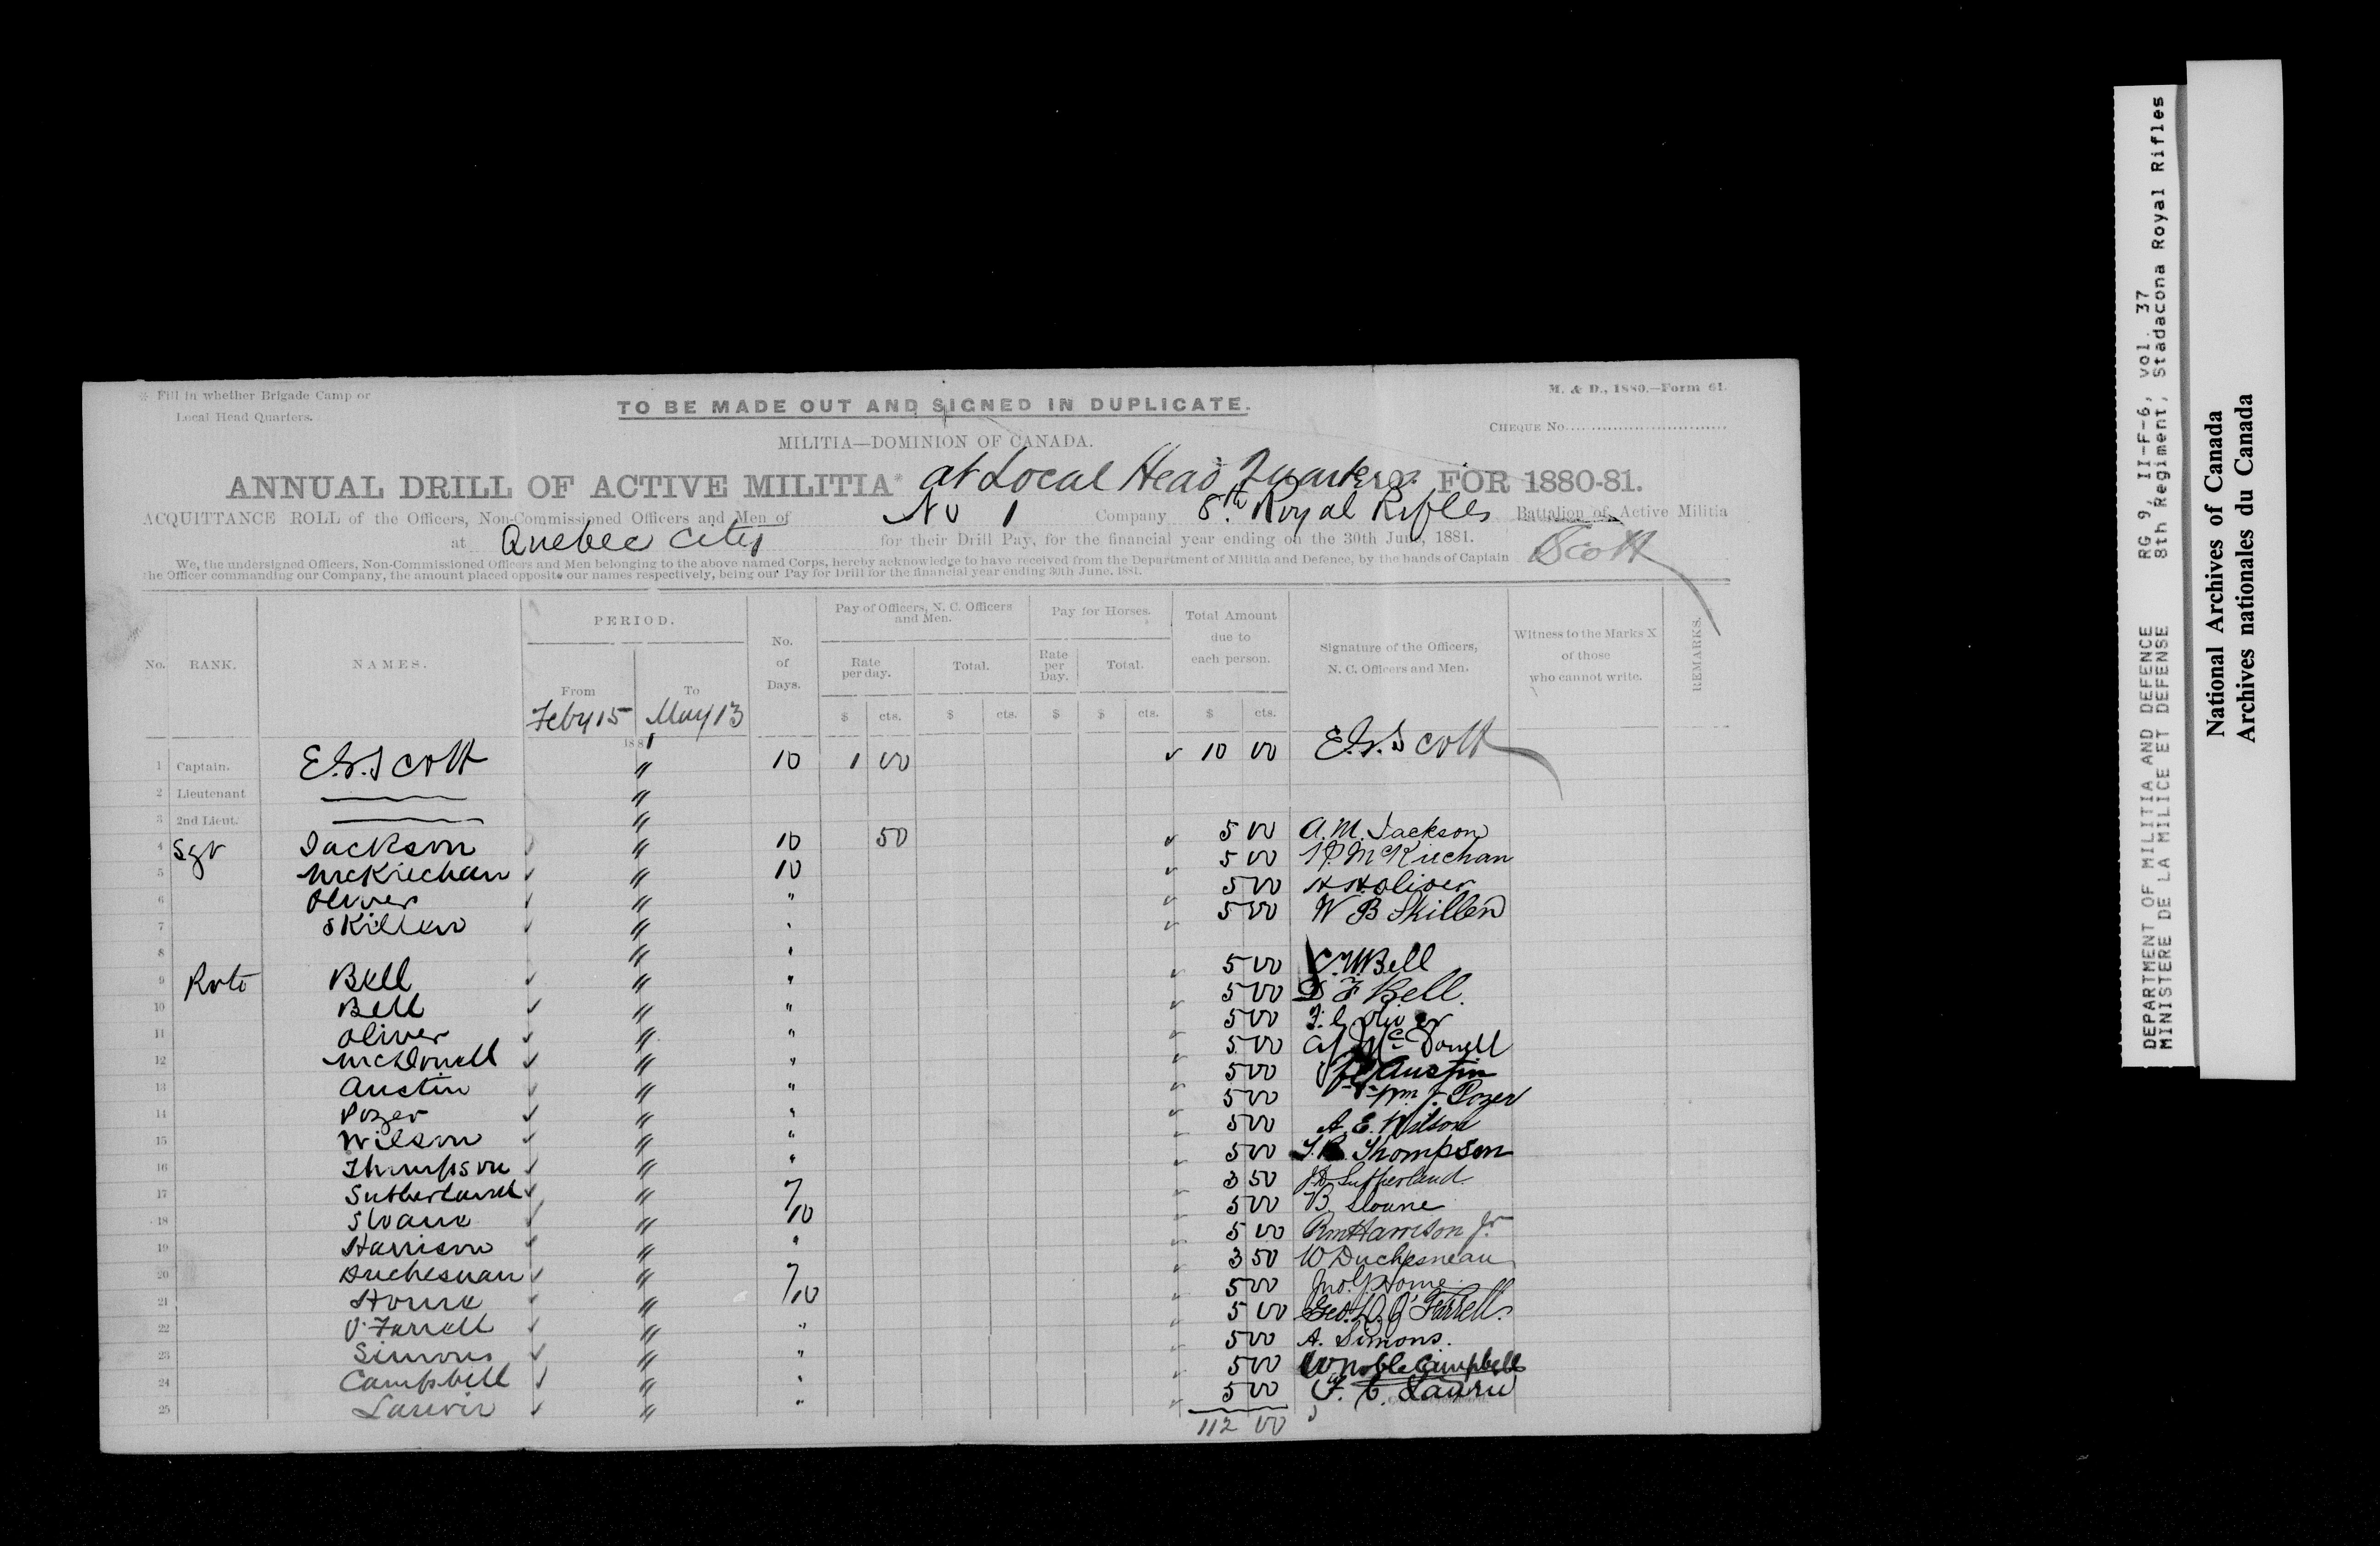 * Fill in whether Brigade Camp or
Local Head Quarters.
TO BE MADE OUT AND SIGNED IN DUPLICATE.
M. & D., 1880.—Form 61.
MILITIA—DOMINION OF CANADA.
CHEQUE No.
ANNUAL DRILL OF ACTIVE MILITIA* at Local Head Quarters FOR 1880-81.
ACQUITTANCE ROLL of the Officers, Non-Commissioned Officers and Men of No 1 Company 8th Royal Rifles Battalion of Active Militia
at Quebec City for their Drill Pay, for the financial year ending on the 30th June, 1881.
We, the undersigned Officers, Non-Commissioned Officers and Men belonging to the above named Corps, hereby acknowledge to have received from the Department of Militia and Defence, by the hands of Captain Scott
the Officer commanding our Company, the amount placed opposite our names respectively, being our Pay for Drill for the financial year ending 30th June, 1881.
No. RANK. NAMES. PERIOD. From To No. of Days. Pay of Officers, N. C. Officers and Men. Rate per day. Total. Pay for Horses. Rate per Day. Total. Total Amount due to each person. Signature of the Officers, N. C. Officers and Men. Witness to the Marks X of those who cannot write. REMARKS.
Feby 15 May 13 $ cts. $ cts. $ $ cts. $ cts.
1881
1 Captain. E.G. Scott " 10 1 00 10 00 E.G. Scott
2 Lieutenant "
3 2nd Lieut. "
4 Sgt Jackson " 10 50 5 00 A. M. Jackson
5 McKiechan " 10 5 00 McKiechan
6 Oliver " " 5 00 Oliver
7 Skillen " " 5 00 W B Skillen
8 " "
9 Rvte Bell " " 5 00 Bell
10 Bell " " 5 00 D F Bell.
11 Oliver " " 5 00 Oliver
12 McDonell " " 5 00 McDonell
13 Austin " " 5 00 Austin
14 Pozer " " 5 00 Wm J. Pozer
15 Wilson " " 5 00 A. E. Wilson
16 Thompson " " 5 00 Thompson
17 Sutherland " 7 3 50 Sutherland
18 Sloane " 10 5 00 B. Sloane
19 Harrison " " 5 00 Harrison Jr
20 Duchesnau " 7 3 50 W Duchesneau
21 Horne " 10 5 00 Jno. Horne
22 O'Farrell " " 5 00 Geo. O'Farrell.
23 Simons " " 5 00 A. Simons.
24 Campbell " " 5 00 W Noble Campbell
25 Laurie " " 5 00 F. C. Laurie
112 00
DEPARTMENT OF MILITIA AND DEFENCE RG 9, II-F-6, vol. 37
MINISTERE DE LA MILICE ET DEFENSE 8th Regiment, Stadacona Royal Rifles
National Archives of Canada
Archives nationales du Canada